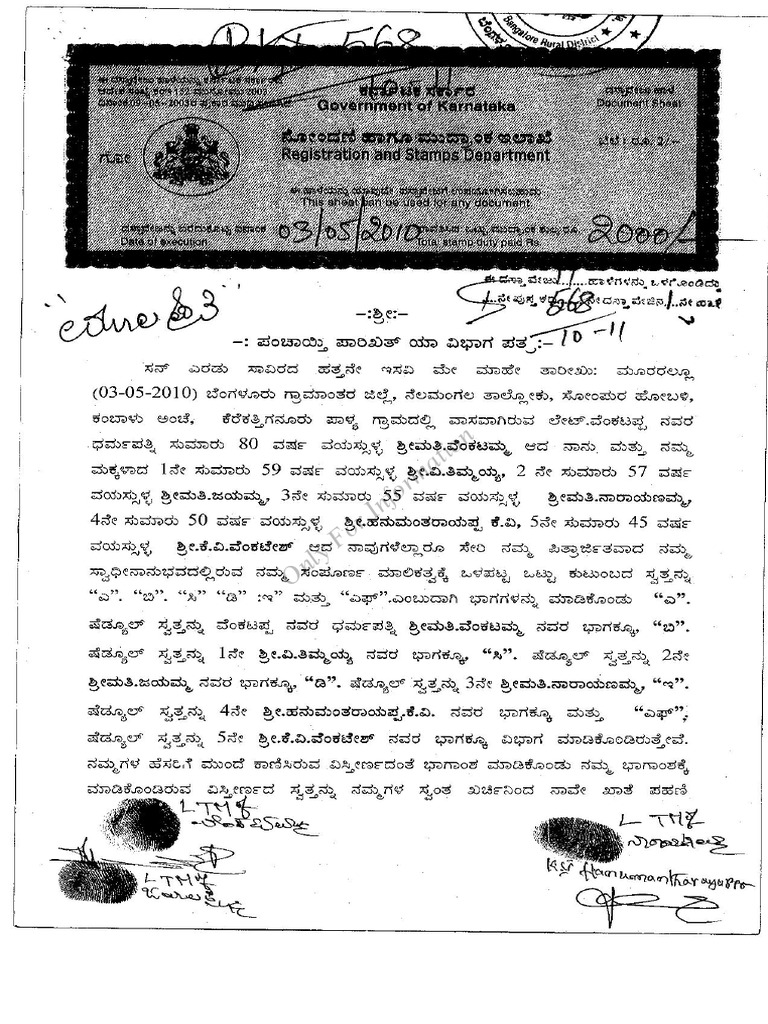 BKI 568
10-11
Bangalore Rural District
ಕರ್ನಾಟಕ ಸರ್ಕಾರ
Government of Karnataka
ದಸ್ತಾವೇಜು ಹಾಳೆ
Document Sheet
ನೋಂದಣಿ ಹಾಗೂ ಮುದ್ರಾಂಕ ಇಲಾಖೆ
ಬೆಲೆ : ರೂ. 2/-
Registration and Stamps Department
ಈ ಹಾಳೆಯನ್ನು ಯಾವುದೇ ದಸ್ತಾವೇಜಿಗೆ ಉಪಯೋಗಿಸಬಹುದು
This sheet can be used for any document
Date of execution 03/05/2010 Total stamp duty paid Rs. 2000/-
ಈ ದಸ್ತಾವೇಜು 11 ಹಾಳೆಗಳನ್ನು ಒಳಗೊಂಡಿದ್ದು
568
10-11
-:ಶ್ರೀ:-
-: ಪಂಚಾಯ್ತಿ ಪಾರಿಖತ್ ಯಾ ವಿಭಾಗ ಪತ್ರ:-
ಸನ್ ಎರಡು ಸಾವಿರದ ಹತ್ತನೇ ಇಸವಿ ಮೇ ಮಾಹೇ ತಾರೀಖು: ಮೂರರಲ್ಲೂ
(03-05-2010) ಬೆಂಗಳೂರು ಗ್ರಾಮಾಂತರ ಜಿಲ್ಲೆ, ನೆಲಮಂಗಲ ತಾಲ್ಲೋಕು, ಸೋಂಪುರ ಹೋಬಳಿ,
ಕಂಬಾಳು ಅಂಚೆ, ಕೆರೆಕತ್ತಿಗನೂರು ಪಾಳ್ಯ ಗ್ರಾಮದಲ್ಲಿ ವಾಸವಾಗಿರುವ ಲೇಟ್.ವೆಂಕಟಪ್ಪ ನವರ
ಧರ್ಮಪತ್ನಿ ಸುಮಾರು 80 ವರ್ಷ ವಯಸ್ಸುಳ್ಳ ಶ್ರೀಮತಿ.ವೆಂಕಟಮ್ಮ ಆದ ನಾನು ಮತ್ತು ನಮ್ಮ
ಮಕ್ಕಳಾದ 1ನೇ ಸುಮಾರು 59 ವರ್ಷ ವಯಸ್ಸುಳ್ಳ ಶ್ರೀ.ವಿ.ತಿಮ್ಮಯ್ಯ, 2 ನೇ ಸುಮಾರು 57 ವರ್ಷ
ವಯಸ್ಸುಳ್ಳ ಶ್ರೀಮತಿ.ಜಯಮ್ಮ, 3ನೇ ಸುಮಾರು 55 ವರ್ಷ ವಯಸ್ಸುಳ್ಳ ಶ್ರೀಮತಿ.ನಾರಾಯಣಮ್ಮ,
4ನೇ ಸುಮಾರು 50 ವರ್ಷ ವಯಸ್ಸುಳ್ಳ ಶ್ರೀ.ಹನುಮಂತರಾಯಪ್ಪ ಕೆ.ವಿ, 5ನೇ ಸುಮಾರು 45 ವರ್ಷ
ವಯಸ್ಸುಳ್ಳ ಶ್ರೀ.ಕೆ.ವಿ.ವೆಂಕಟೇಶ್ ಆದ ನಾವುಗಳೆಲ್ಲಾರೂ ಸೇರಿ ನಮ್ಮ ಪಿತ್ರಾರ್ಜಿತವಾದ ನಮ್ಮ
ಸ್ವಾಧೀನಾನುಭವದಲ್ಲಿರುವ ನಮ್ಮ ಸಂಪೂರ್ಣ ಮಾಲಿಕತ್ವಕ್ಕೆ ಒಳಪಟ್ಟ ಒಟ್ಟು ಕುಟುಂಬದ ಸ್ವತ್ತನ್ನು
“ಎ”. “ಬಿ”. “ಸಿ” “ಡಿ” :ಇ” ಮತ್ತು “ಎಫ್”.ಎಂಬುದಾಗಿ ಭಾಗಗಳನ್ನು ಮಾಡಿಕೊಂಡು “ಎ”.
ಷೆಡ್ಯೂಲ್ ಸ್ವತ್ತನ್ನು ವೆಂಕಟಪ್ಪ ನವರ ಧರ್ಮಪತ್ನಿ ಶ್ರೀಮತಿ.ವೆಂಕಟಮ್ಮ ನವರ ಭಾಗಕ್ಕೂ, “ಬಿ”.
ಷೆಡ್ಯೂಲ್ ಸ್ವತ್ತನ್ನು 1ನೇ ಶ್ರೀ.ವಿ.ತಿಮ್ಮಯ್ಯ ನವರ ಭಾಗಕ್ಕೂ, “ಸಿ”. ಷೆಡ್ಯೂಲ್ ಸ್ವತ್ತನ್ನು 2ನೇ
ಶ್ರೀಮತಿ.ಜಯಮ್ಮ ನವರ ಭಾಗಕ್ಕೂ, “ಡಿ”. ಷೆಡ್ಯೂಲ್ ಸ್ವತ್ತನ್ನು 3ನೇ ಶ್ರೀಮತಿ.ನಾರಾಯಣಮ್ಮ, “ಇ”.
ಷೆಡ್ಯೂಲ್ ಸ್ವತ್ತನ್ನು 4ನೇ ಶ್ರೀ.ಹನುಮಂತರಾಯಪ್ಪ.ಕೆ.ವಿ. ನವರ ಭಾಗಕ್ಕೂ ಮತ್ತು “ಎಫ್”.
ಷೆಡ್ಯೂಲ್ ಸ್ವತ್ತನ್ನು 5ನೇ ಶ್ರೀ.ಕೆ.ವಿ.ವೆಂಕಟೇಶ್ ನವರ ಭಾಗಕ್ಕೂ ವಿಭಾಗ ಮಾಡಿಕೊಂಡಿರುತ್ತೇವೆ.
ನಮ್ಮಗಳ ಹೆಸರಿಗೆ ಮುಂದೆ ಕಾಣಿಸಿರುವ ವಿಸ್ತೀರ್ಣದಂತೆ ಭಾಗಾಂಶ ಮಾಡಿಕೊಂಡು ನಮ್ಮ ಭಾಗಾಂಶಕ್ಕೆ
ಮಾಡಿಕೊಂಡಿರುವ ವಿಸ್ತೀರ್ಣದ ಸ್ವತ್ತನ್ನು ನಮ್ಮಗಳ ಸ್ವಂತ ಖರ್ಚಿನಿಂದ ನಾವೇ ಖಾತೆ ಪಹಣಿ
Only For Information
LTM of
LTM of
LTM of
K.V Hanumantharayappa